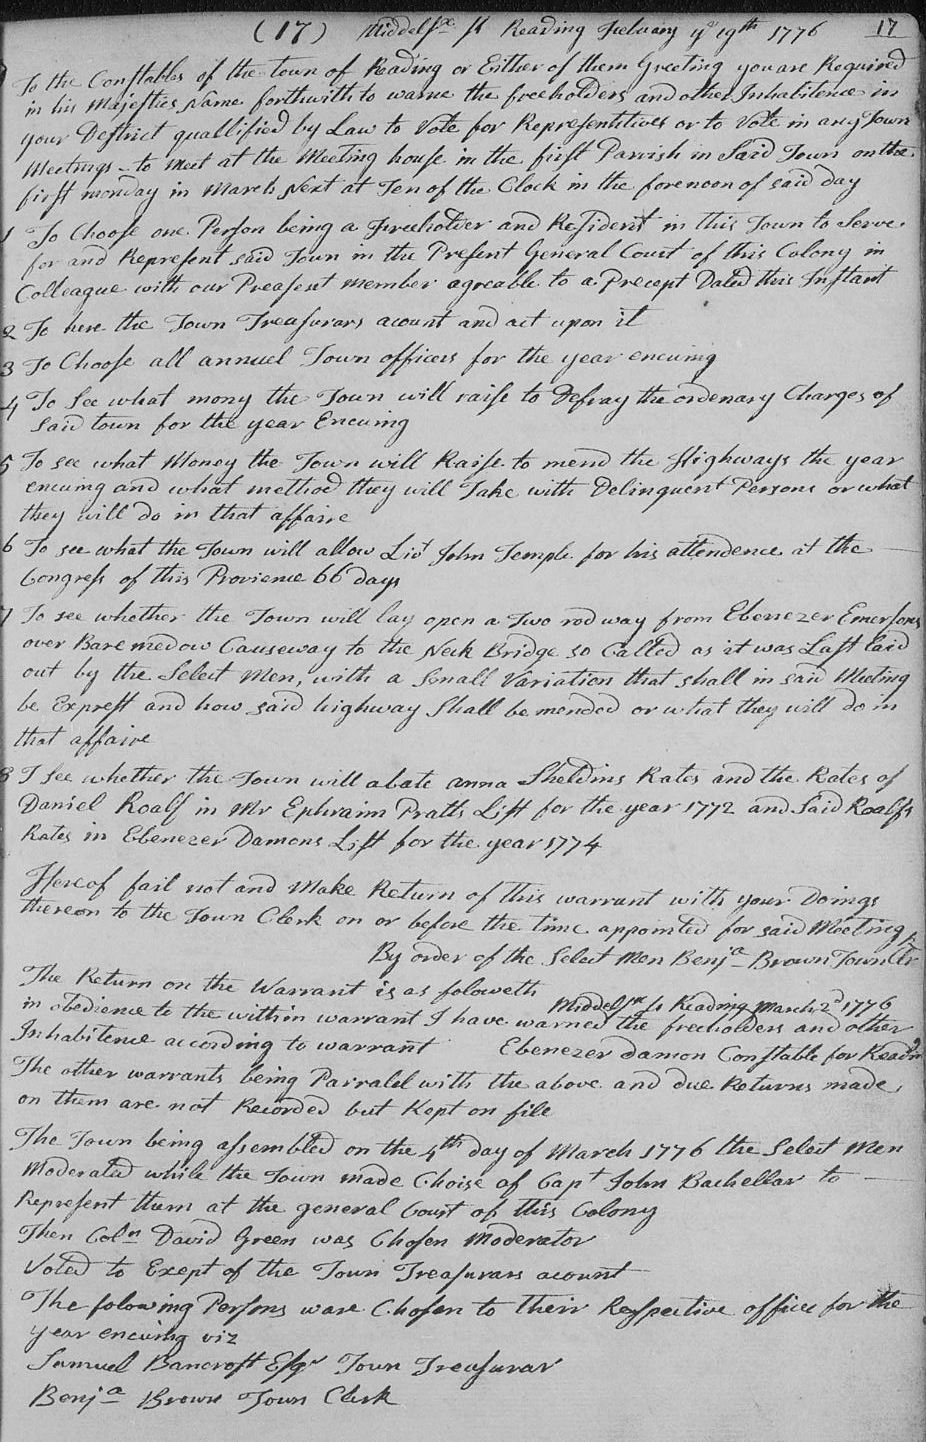 (17) Middelsx ss Reading Febuary ye 19th 1776 17
To the Constables of the town of Reading or Either of them Greeting you are Required
in his Majesties Name forthwith to warne the freeholders and other Inhabitence in
your Destrict quallified by Law to Vote for Representitives or to Vote in any Town
Meetings - to Meet at the Meeting house in the first Parrish in Said Town on the
first monday in March Next at Ten of the Clock in the forenoon of said day
1 To Choose one Person being a Freeholder and Resident in this Town to Serve
for and Represent said Town in the Present General Court of this Colony in
Colleague with our Preasent member agreable to a Precept Dated this Instant
2 To here the Town Treasurars acount and act upon it
3 To Choose all annuel Town officers for the year encuing
4 To See what mony the Town will raise to Defray the ordenary Charges of
Said town for the year Encuing
5 To see what Money the Town will Raise to mend the Highways the year
encuing and what method they will Take with Delinquent Persons or what
they will do in that affaire
6 To see what the Town will allow Livt John Temple for his attendence at the
Congress of this Provience 66 days
7 To see whether the Town will lay open a Two rod way from Ebenezer Emersons
over Bare medow Causeway to the Neck Bridge so Called as it was Last laid
out by the Select Men, with a Small Variation that shall in said Meeting
be Exprest and how said highway Shall be mended or what they will do in
that affaire
8 T See whether the Town will abate anna Sheldins Rates and the Rates of
Daniel Roalf in Mr Ephraim Pratts List for the year 1772 and Said Roalfs
Rates in Ebenezer Damons List for the year 1774
Hereof fail not and Make Return of this warrant with your Doings
thereon to the Town Clerk on or before the time appointed for said Meeting
By order of the Select Men Benja Brown Town Clrk
The Return on the Warrant is as foloweth
Middelsx ss Reading March 2d 1776
in obedience to the within warrant I have warned the freeholders and other
Inhabitence according to warrant Ebenezer Damon Constable for Reading
The other warrants being Parralel with the above and due Returns made
on them are not Recorded but Kept on file
The Town being assembled on the 4th day of March 1776 the Select Men
Moderated while the Town made Choise of Capt John Bachellar to
Represent them at the general Court of this Colony
Then Coln David Green was Chosen Moderator
Voted to Exept of the Town Treasurars acount
The folowing Persons ware Chosen to Their Respective offices for the
year encuing viz
Samuel Bancroft Esqr Town Treasurar
Benja Brown Town Clerk